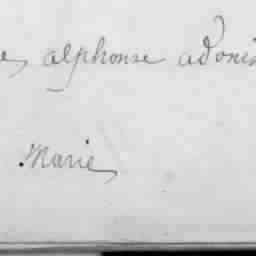 e, alphonse adonis
Marie